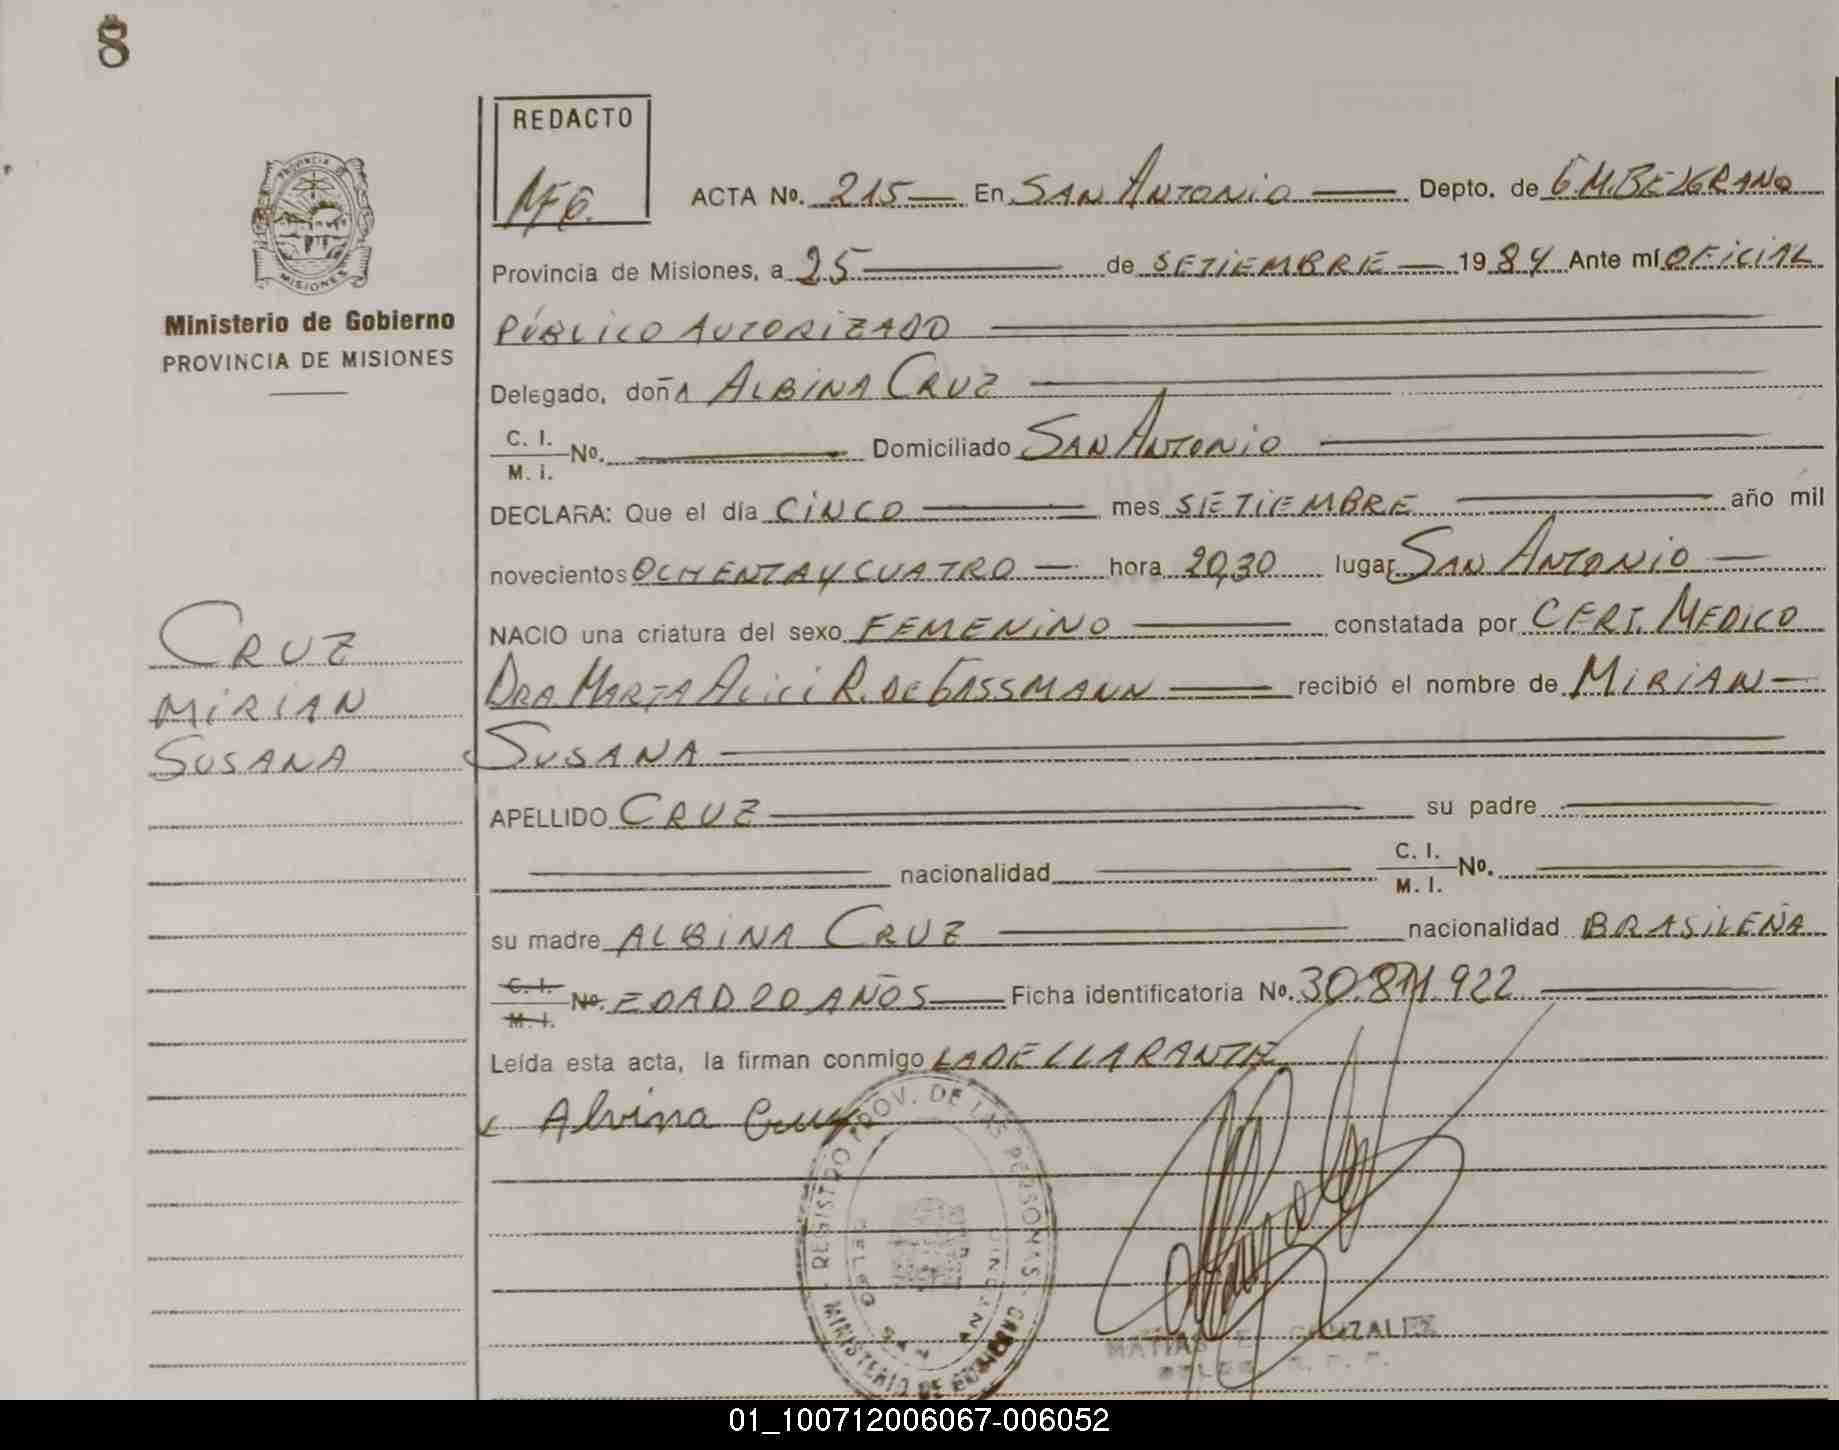 8
REDACTO
ACTA Nº. 215 En SAN ANTONIO Depto. de G.M.BELGRANO
PROVINCIA
MISIONES
Ministerio de Gobierno
PROVINCIA DE MISIONES
Provincia de Misiones, a 25 de SETIEMBRE 1984 Ante mí OFICIAL
PÚBLICO AUTORIZADO
Delegado, doñA ALBINA CRUZ
C. I.
M. I. Nº. Domiciliado SAN ANTONIO
DECLARA: Que el día CINCO mes SETIEMBRE año mil
novecientos OCHENTA Y CUATRO hora 20,30 lugar SAN ANTONIO
NACIO una criatura del sexo FEMENINO constatada por CERT. MEDICO
DRA. MARTA ALICI R. DE GASSMANN recibió el nombre de MIRIAN
SUSANA
CRUZ
MIRIAN
SUSANA
APELLIDO CRUZ su padre
nacionalidad C. I.
M. I. Nº.
su madre ALBINA CRUZ nacionalidad BRASILEÑA
C. I.
M. I. Nº. EDAD 20 AÑOS Ficha identificatoria Nº. 30.811.922
Leída esta acta, la firman conmigo LA DECLARANTE
Alvina Cruz
REGISTRO PROV. DE LAS PERSONAS
MINISTERIO DE
MATIAS E. GONZALEZ
01_100712006067-006052